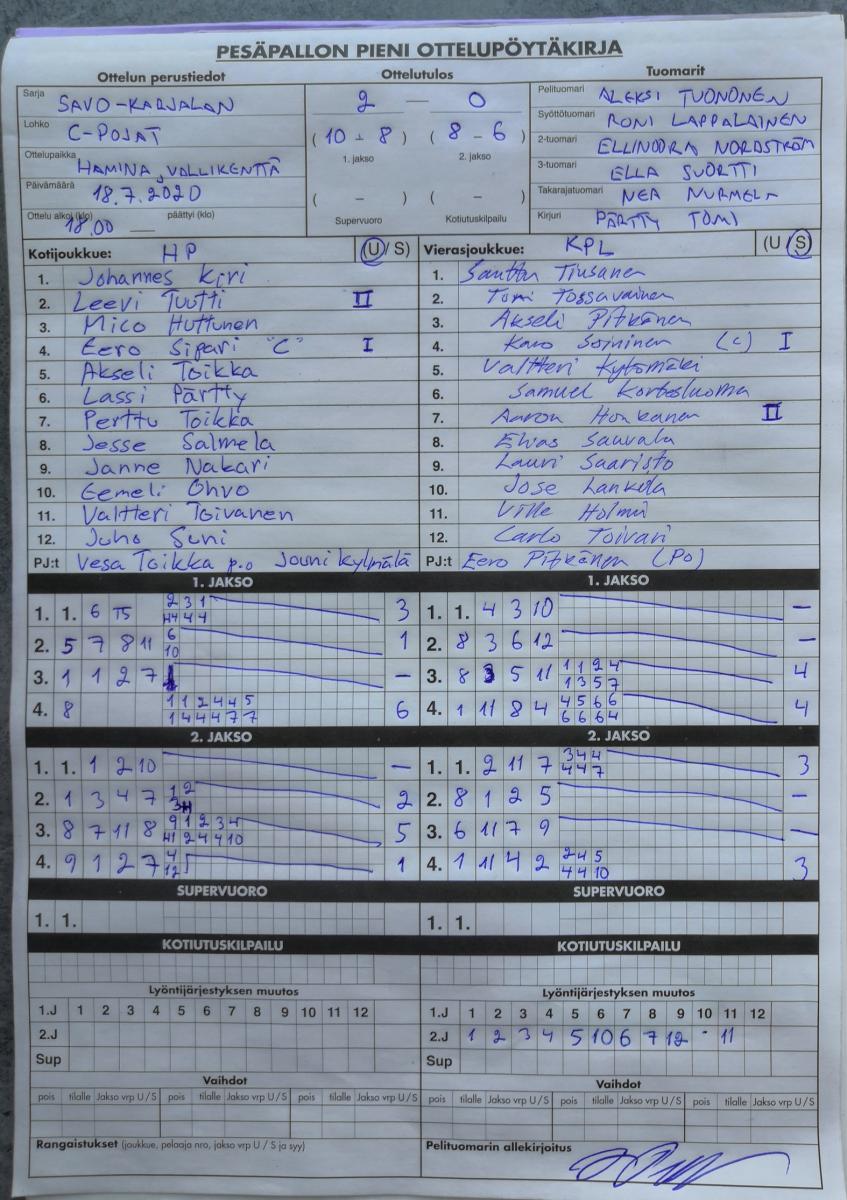 PESÄPALLON PIENI OTTELUPÖYTÄKIRJA
Ottelun perustiedot
Sarja SAVO-KARJALAN
Lohko C-POJAT
Ottelupaikka HAMINA, VALLIKENTTÄ
Päivämäärä 18.7.2020
Ottelu alkoi (klo) 18.00 päättyi (klo) —
Ottelutulos
2 — 0
( 10 - 8 ) ( 8 - 6 )
1. jakso 2. jakso
( - ) ( - )
Supervuoro Kotiutuskilpailu
Tuomarit
Pelituomari ALEKSI TUONONEN
Syöttötuomari RONI LAPPALAINEN
2-tuomari ELLINOORA NORDSTRÖM
3-tuomari ELLA SUORTTI
Takarajatuomari NEA NURMELA
Kirjuri PÄRTTY TOMI
Kotijoukkue: HP (U / S)
1. Johannes Kiri
2. Leevi Tuutti II
3. Mico Huttunen
4. Eero Sipari "C" I
5. Akseli Toikka
6. Lassi Pärtty
7. Perttu Toikka
8. Jesse Salmela
9. Janne Nakari
10. Eemeli Ohvo
11. Valtteri Toivanen
12. Juho Suni
PJ:t Vesa Toikka p.o Jouni Kylmälä
Vierasjoukkue: KPL (U / S)
1. Santtu Tiusanen
2. Tomi Tossavainen
3. Akseli Pitkänen
4. Karo Soininen (c) I
5. Valtteri Kytömäki
6. Samuel Kortesluoma
7. Aaron Honkanen II
8. Elias Sauvala
9. Lauri Saaristo
10. Jose Lankila
11. Ville Holmi
12. Carlo Toivari
PJ:t Eero Pitkänen (Po)
1. JAKSO
1. 1. 6 T5 2 3 1 3
H4 4 4
2. 5 7 8 11 6 1
10
3. 1 1 2 7 —
4. 8 1 1 2 4 4 5 6
1 4 4 4 7 7
2. JAKSO
1. 1. 1 2 10 —
2. 1 3 4 7 1 2 2
3. 8 7 11 8 9 1 2 3 4 5
H1 2 4 4 10
4. 9 1 2 7 4 1
12
SUPERVUORO
1. 1.
KOTIUTUSKILPAILU
Lyöntijärjestyksen muutos
1.J 1 2 3 4 5 6 7 8 9 10 11 12
2.J
Sup
Vaihdot
pois tilalle Jakso vrp U / S pois tilalle Jakso vrp U / S pois tilalle Jakso vrp U / S
Rangaistukset (joukkue, pelaaja nro, jakso vrp U / S ja syy)
1. JAKSO
1. 1. 4 3 10 —
2. 8 3 6 12 —
3. 8 3 5 11 1 1 2 4 4
1 3 5 7
4. 1 11 8 4 4 5 6 6 4
6 6 6 4
2. JAKSO
1. 1. 2 11 7 3 4 4 3
4 4 7
2. 8 1 2 5 —
3. 6 11 7 9 —
4. 1 11 4 2 2 4 5 3
4 4 10
SUPERVUORO
1. 1.
KOTIUTUSKILPAILU
Lyöntijärjestyksen muutos
1.J 1 2 3 4 5 6 7 8 9 10 11 12
2.J 1 2 3 4 5 10 6 7 12 - 11
Sup
Vaihdot
pois tilalle Jakso vrp U / S pois tilalle Jakso vrp U / S pois tilalle Jakso vrp U / S
Pelituomarin allekirjoitus